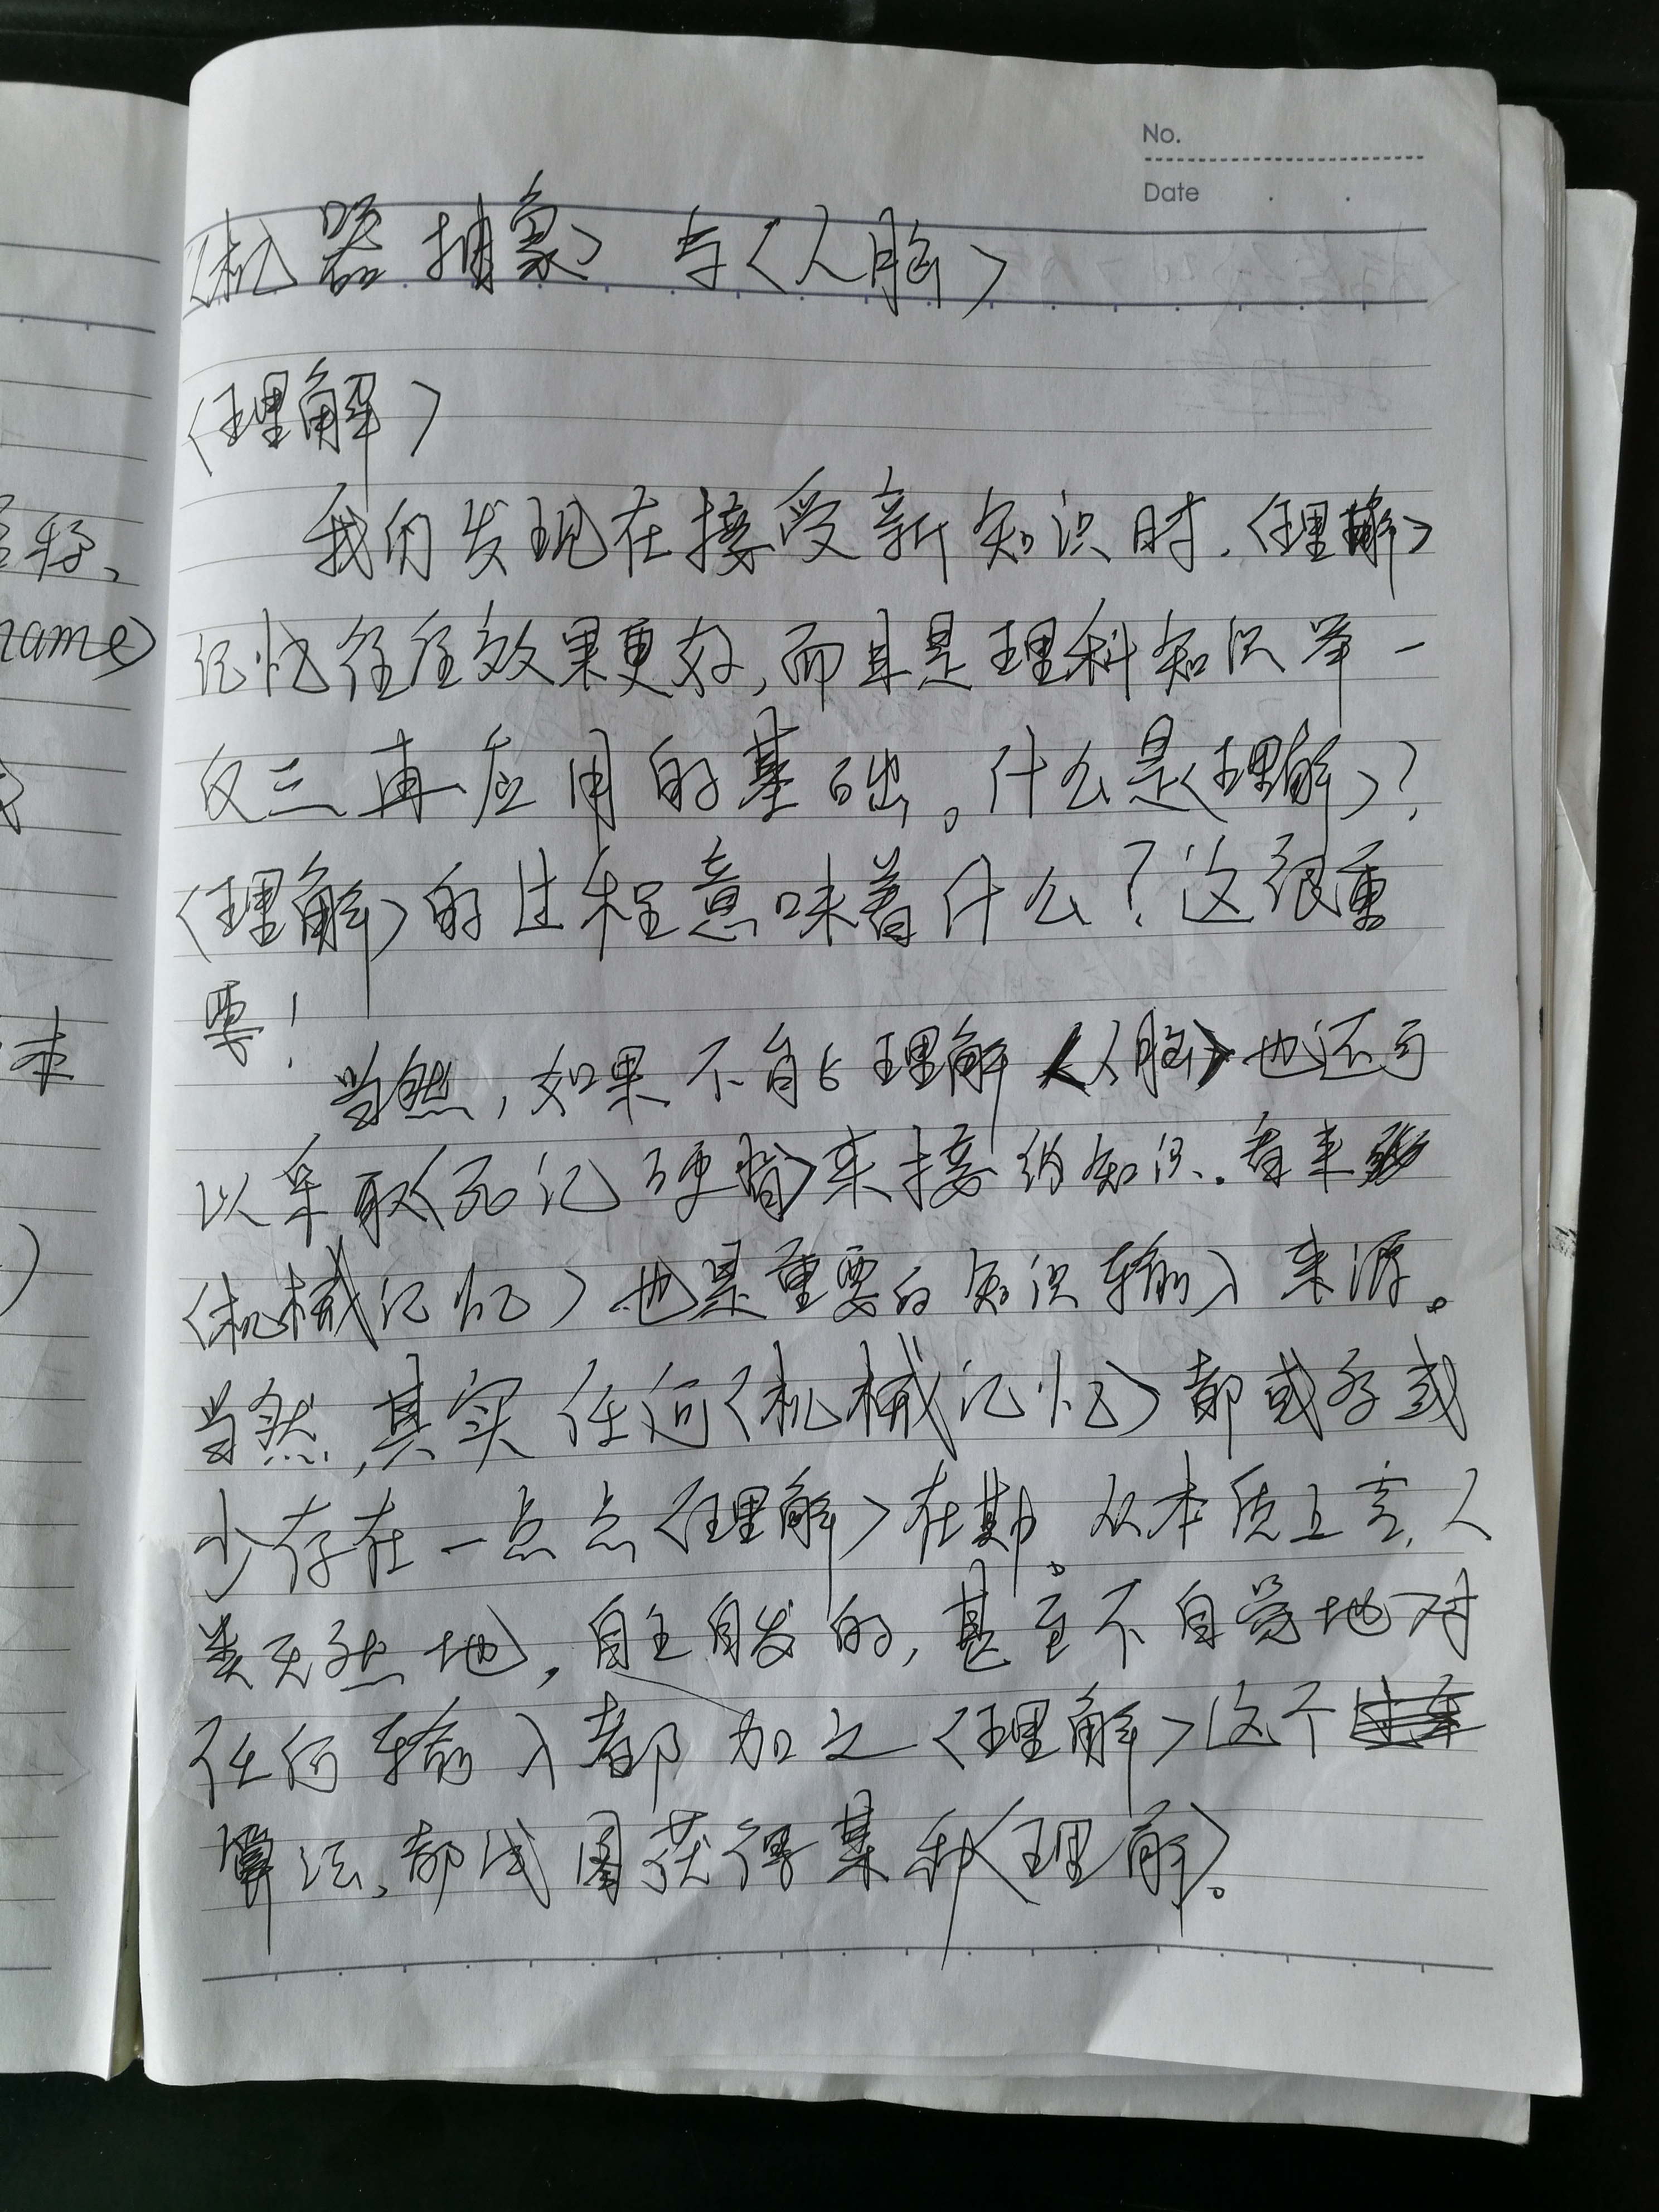 No.
Date
〈机器抽象〉与〈人脑〉
〈理解〉
我们发现在接受新知识时.〈理解〉
记忆往往效果更好,而且是理科知识举一
反三再应用的基础。什么是〈理解〉?
〈理解〉的过程意味着什么?这很重
要!
当然,如果不能理解〈人脑〉也还可
以采取〈死记硬背〉来接纳知识.看来
〈机械记忆〉也是重要的知识输入来源。
当然,其实任何〈机械记忆〉都或多或
少存在一点点〈理解〉在勘。从本质上言,人
类天然地,自主自发的,甚至不自觉地对
任何输入都加之〈理解〉这个
算法,都试图获得某种〈理解〉。
name)
本